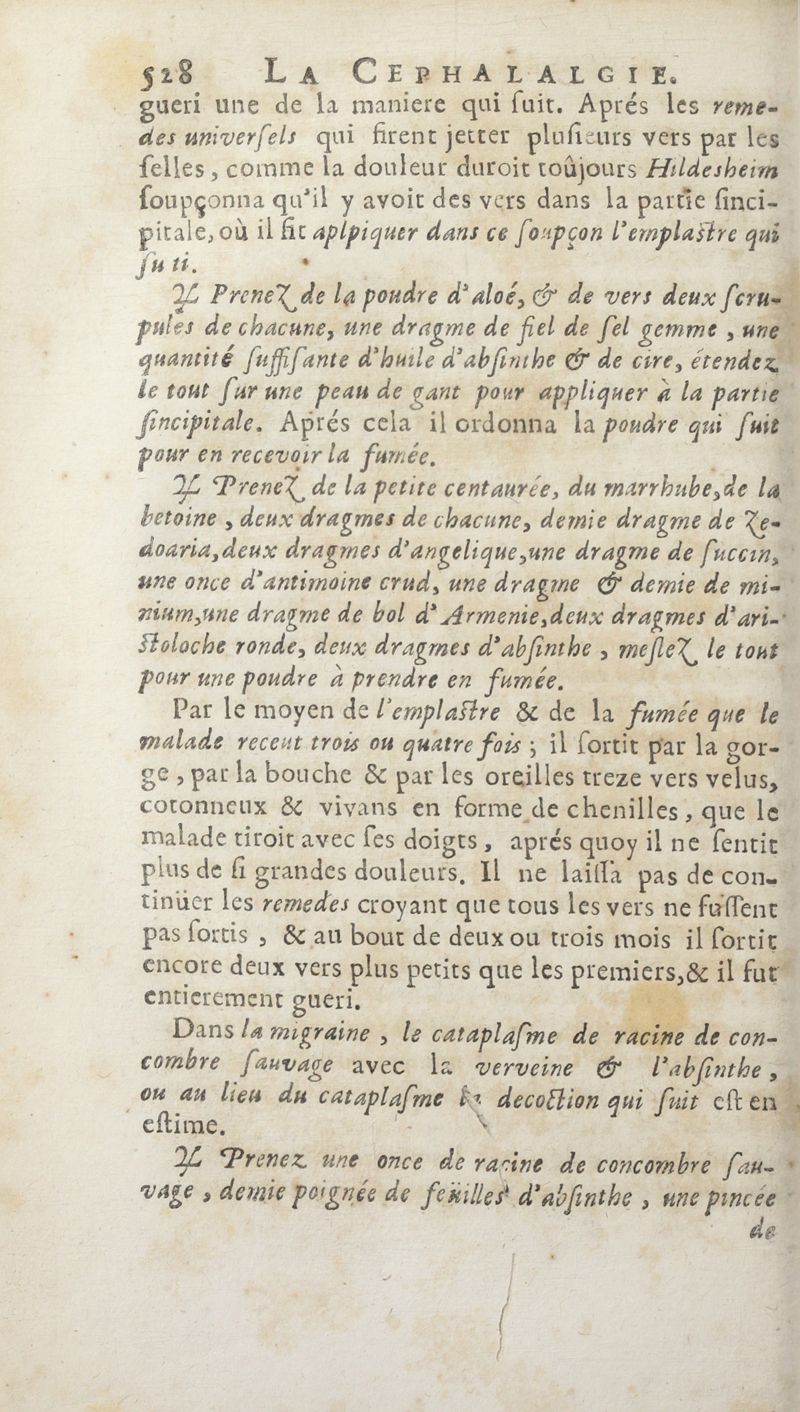 528 LA CEPHALALGIE.
gueri une de la maniere qui ſuit. Aprés les reme-
des univerſels qui firent jetter pluſieurs vers par les
ſelles, comme la douleur duroit toûjours Hildesheim
ſoupçonna qu'il y avoit des vers dans la partie ſinci-
pitale, où il fit aplpiquer dans ce ſoupçon l'emplaſtre qui
ſu ti.
♃ Prenez de la poudre d'aloé, & de vers deux ſcru-
pules de chacune, une dragme de fiel de ſel gemme, une
quantité ſuffiſante d'huile d'abſinthe & de cire, étendez
le tout ſur une peau de gant pour appliquer à la partie
ſincipitale. Aprés cela il ordonna la poudre qui ſuit
pour en recevoir la fumée.
♃ Prenez de la petite centaurée, du marrhube, de la
betoine, deux dragmes de chacune, demie dragme de Ze-
doaria, deux dragmes d'angelique, une dragme de ſuccin,
une once d'antimoine crud, une dragme & demie de mi-
nium, une dragme de bol d'Armenie, deux dragmes d'ari-
ſtoloche ronde, deux dragmes d'abſinthe, meſlez le tout
pour une poudre à prendre en fumée.
Par le moyen de l'emplaſtre & de la fumée que le
malade receut trois ou quatre fois ; il ſortit par la gor-
ge, par la bouche & par les oreilles treze vers velus,
cotonneux & vivans en forme de chenilles, que le
malade tiroit avec ſes doigts, aprés quoy il ne ſentit
plus de ſi grandes douleurs. Il ne laiſſa pas de con-
tinüer les remedes croyant que tous les vers ne fuſſent
pas ſortis, & au bout de deux ou trois mois il ſortit
encore deux vers plus petits que les premiers, & il fut
entierement gueri.
Dans la migraine, le cataplaſme de racine de con-
combre ſauvage avec la verveine & l'abſinthe,
ou au lieu du cataplaſme decoction qui ſuit eſt en
eſtime.
♃ Prenez une once de racine de concombre ſau-
vage, demie poignée de feüilles d'abſinthe, une pincée
de